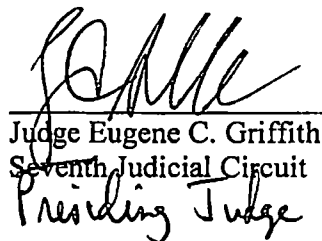 Judge Eugene C. Griffith
Seventh Judicial Circuit
Presiding Judge